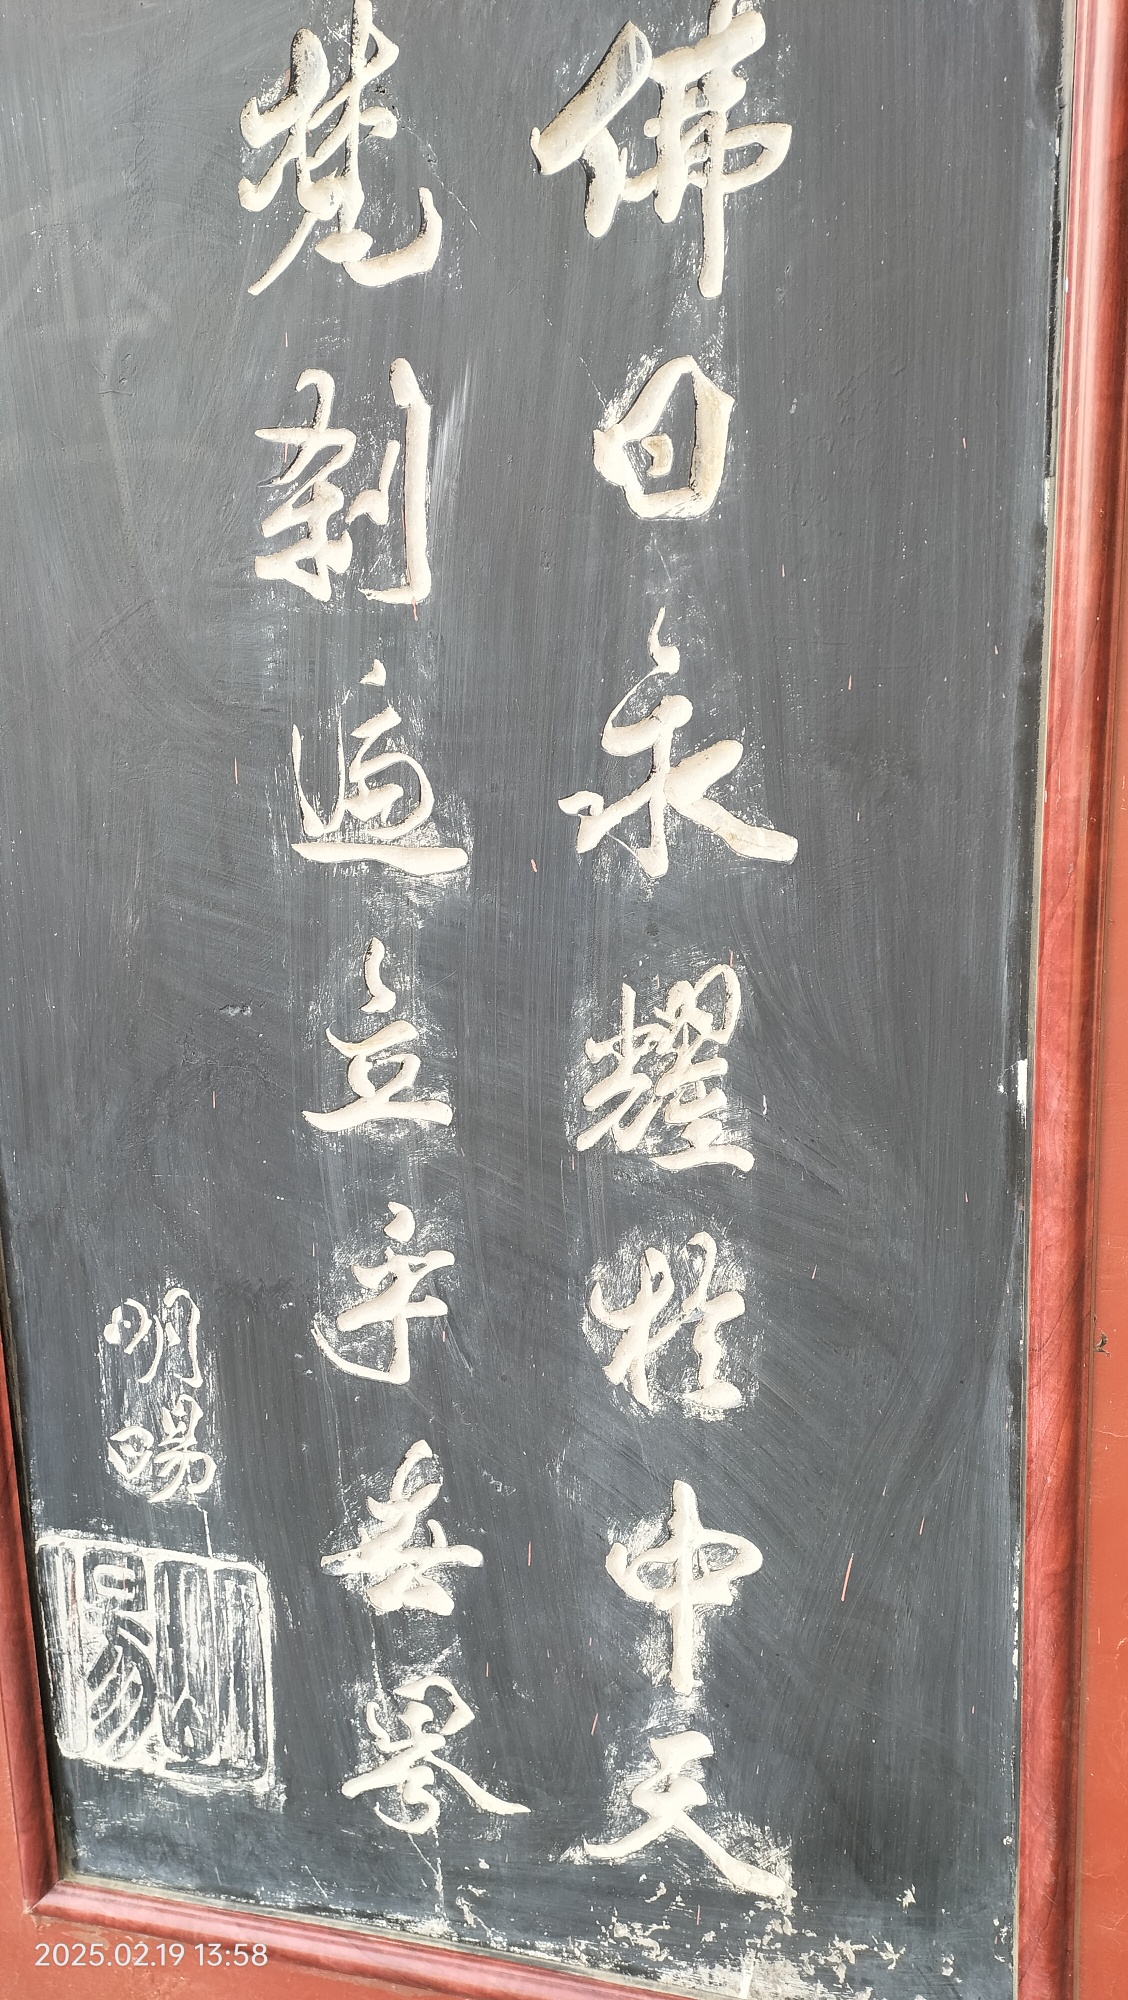 佛日永耀於中天
梵刹遍立乎無界
明暘
明暘
2025.02.19 13:58